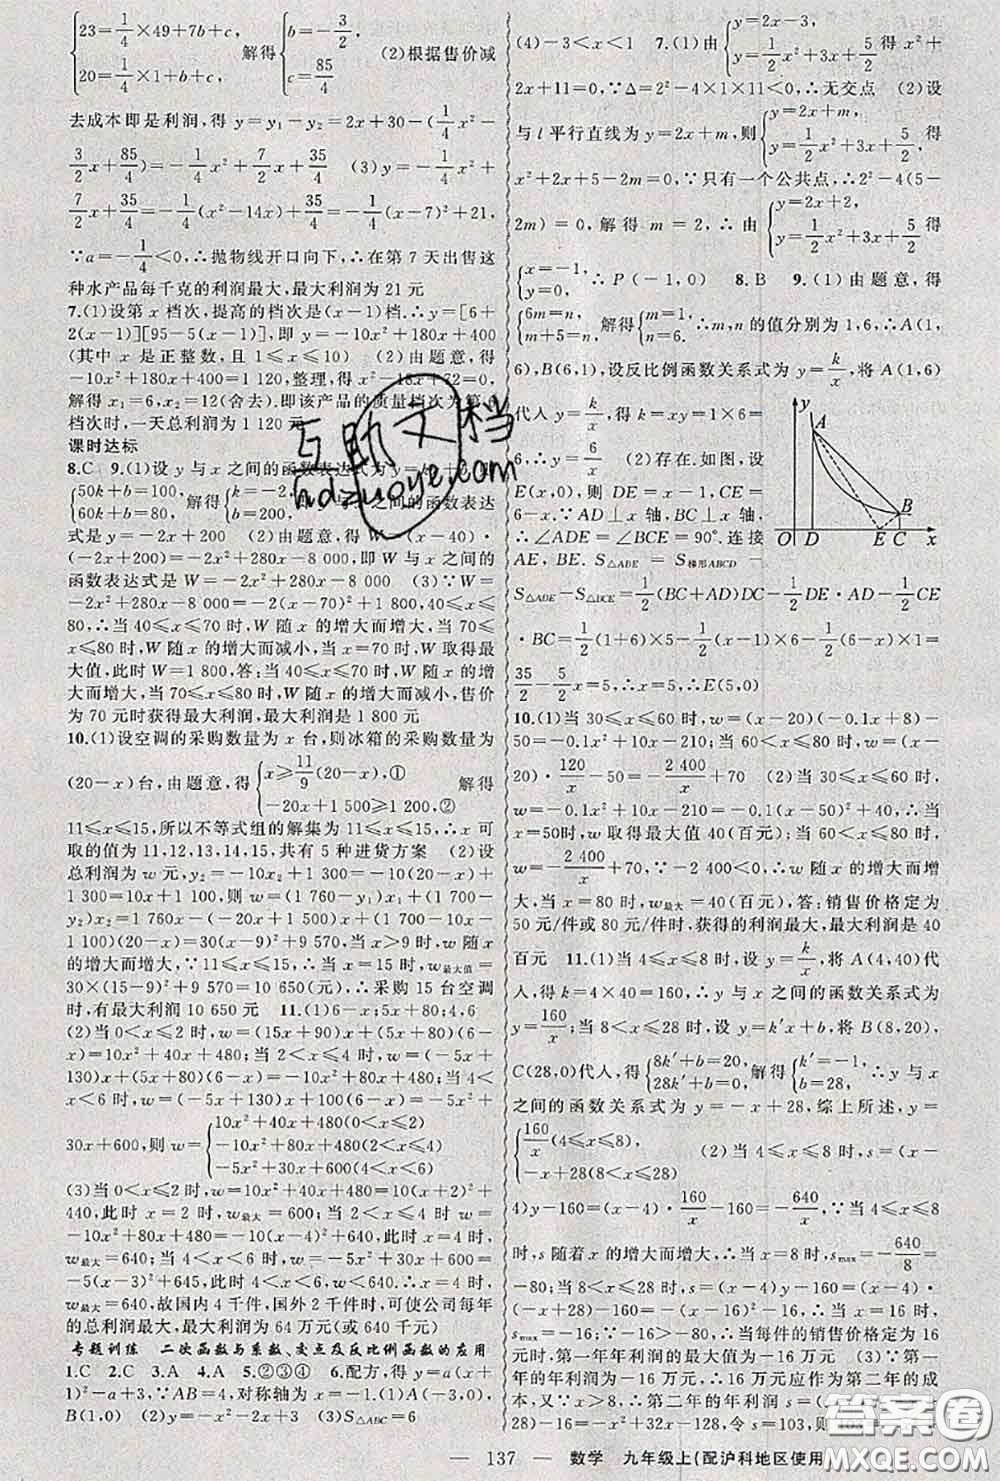 {23=1/4×49+7b+c, 20=1/4×1+b+c, 解得{b=-3/2, c=85/4 (2)根据售价减
去成本即是利润,得 y=y₁-y₂=2x+30-(1/4x²-
3/2x+85/4)=-1/4x²+7/2x+35/4 (3)y=-1/4x²+
7/2x+35/4=-1/4(x²-14x)+35/4=-1/4(x-7)²+21.
∵a=-1/4<0,∴抛物线开口向下,∴在第 7 天出售这
种水产品每千克的利润最大,最大利润为 21 元
7.(1)设第 x 档次,提高的档次是(x-1)档.∴y=[6+
2(x-1)][95-5(x-1)],即 y=-10x²+180x+400
(其中 x 是正整数,且 1≤x≤10) (2)由题意,得
-10x²+180x+400=1 120,整理,得 x²-18x+72=0,
解得 x₁=6,x₂=12(舍去).即该产品的质量档次为第 6
档次时,一天总利润为 1 120 元
课时达标
8.C 9.(1)设 y 与 x 之间的函数表达式为 y=
{50k+b=100, 60k+b=80, 解得{k=-2, b=200, 之间的函数表达
式是 y=-2x+200 (2)由题意,得 W=(x-40)·
(-2x+200)=-2x²+280x-8 000,即 W 与 x 之间的
函数表达式是 W=-2x²+280x-8 000 (3)∵W=
-2x²+280x-8 000=-2(x-70)²+1 800,40≤x≤
80,∴当 40≤x≤70 时,W 随 x 的增大而增大,当 70≤
x≤80 时,W 随 x 的增大而减小,当 x=70 时,W 取得最
大值,此时 W=1 800,答:当 40≤x≤70 时,W 随 x 的增
大而增大,当 70≤x≤80 时,W 随 x 的增大而减小,售价
为 70 元时获得最大利润,最大利润是 1 800 元
10.(1)设空调的采购数量为 x 台,则冰箱的采购数量为
(20-x)台,由题意,得{x≥11/9(20-x),① -20x+1 500≥1 200,② 解得
11≤x≤15,所以不等式组的解集为 11≤x≤15,∴x 可
取的值为 11,12,13,14,15,共有 5 种进货方案 (2)设
总利润为 w 元,y₂=-10x₂+1 300=-10(20-x)+
1 300=10x+1 100,则 w=(1 760-y₁)x₁+(1 700-
y₂)x₂=1 760x-(-20x+1 500)x+(1 700-10x-
1 100)(20-x)=30(x-9)²+9 570,当 x>9 时,w 随 x
的增大而增大,∵11≤x≤15,∴当 x=15 时,w最大值=
30×(15-9)²+9 570=10 650(元),∴采购 15 台空调
时,有最大利润 10 650 元 11.(1)6-x;5x+80;4,6
(2)当 0<x≤2 时,w=(15x+90)x+(5x+80)(6-
x)=10x²+40x+480;当 2<x≤4 时,w=(-5x+
130)x+(5x+80)(6-x)=-10x²+80x+480;当
4<x<6 时,w=(-5x+130)x+400(6-x)=-5x²+
30x+600,则 w={10x²+40x+480(0<x≤2) -10x²+80x+480(2<x≤4) -5x²+30x+600(4<x<6)
(3)当 0<x≤2 时,w=10x²+40x+480=10(x+2)²+
440,此时 x=2 时,w最大=600;当 2<x≤4 时,w=
-10x²+80x+480=-10(x-4)²+640,此时 x=4 时,
w最大=640;当 4<x<6 时,w=-5x²+30x+600=
-5(x-3)²+645,当 4<x<6 时,w<640,∴x=4 时,
w最大=640,故国内 4 千件,国外 2 千件时,可使公司每年
的总利润最大,最大利润为 64 万元(或 640 千元)
专题训练 二次函数与系数、交点及反比例函数的应用
1.C 2.C 3.A 4.A 5.②③④ 6.配方,得 y=a(x+
1)²-a+3,∵AB=4,对称轴为 x=-1,∴A(-3,0),
B(1,0) (2)y=-x²-2x+3 (3)S△ABC=6
(4)-3<x<1 7.(1)由{y=2x-3, y=1/2x²+3x+5/2 得 x²+
2x+11=0,∵Δ=2²-4×1×11<0,∴无交点 (2)设
与 l 平行直线为 y=2x+m,则{y=2x+m, y=1/2x²+3x+5/2, 得
x²+2x+5-2m=0,∵只有一个公共点,∴2²-4(5-
2m)=0,解得 m=2,∴由{y=2x+2, y=1/2x²+3x+5/2 得
{x=-1, y=0. ∴P(-1,0) 8.B 9.(1)由题意,得
{6m=n, m+5=n, 解得{m=1, n=6. ∴m,n 的值分别为 1,6,∴A(1,
6),B(6,1),设反比例函数关系式为 y=k/x,将 A(1,6)
代入 y=k/x,得 k=xy=1×6=
6,∴y=6/x (2)存在.如图,设
E(x,0),则 DE=x-1,CE=
6-x.∵AD⊥x 轴,BC⊥x 轴,
∴∠ADE=∠BCE=90°.连接
AE,BE.S△ABE=S梯形ABCD-
y A B O D E C x
S△ADE-S△BCE=1/2(BC+AD)CD-1/2DE·AD-1/2CE
·BC=1/2(1+6)×5-1/2(x-1)×6-1/2(6-x)×1=
35/2-5/2x=5,∴x=5,∴E(5,0)
10.(1)当 30≤x≤60 时,w=(x-20)(-0.1x+8)-
50=-0.1x²+10x-210;当 60<x≤80 时,w=(x-
20)·120/x-50=-2 400/x+70 (2)当 30≤x≤60 时,
w=-0.1x²+10x-210=-0.1(x-50)²+40,∴当
x=50时,w 取得最大值 40(百元);当 60<x≤80 时,
w=-2 400/x+70,∵-2 400<0,∴w 随 x 的增大而增
大,当 x=80 时,w最大=40(百元),答:销售价格定为
50 元/件或 80 元/件时,获得的年利润最大,最大利润是 40
百元 11.(1)当 4≤x≤8 时,设 y=k/x,将 A(4,40)代
入,得 k=4×40=160,∴y 与 x 之间的函数关系式为
y=160/x;当 8<x≤28 时,设 y=k′x+b,将 B(8,20),
C(28,0)代人,得{8k′+b=20, 28k′+b=0, 解得{k′=-1, b=28, ∴y 与 x
之间的函数关系式为 y=-x+28,综上所述,y=
{160/x(4≤x≤8), -x+28(8<x≤28) (2)当 4≤x≤8 时,s=(x-
4)y-160=(x-4)·160/x-160=-640/x,∵当 4≤x≤8
时,s 随着 x 的增大而增大,∴当 x=8 时,smax=-640/8=
-80;当 8<x≤28 时,s=(x-4)y-160=(x-4)·
(-x+28)-160=-(x-16)²-16,∴当 x=16 时,
smax=-16,∵-16>-80,∴当每件的销售价格定为 16
元时,第一年年利润的最大值为-16 万元 (3)∵第一
年的年利润为-16 万元,∴16 万元应作为第二年的成
本,又∵x>8,∴第二年的年利润 s=(x-4)(-x+
28)-16=-x²+32x-128,令 s=103,则103=
— 137 — 数学 九年级上(配沪科地区使用)
互助文档
hdzuoye.com
答案圈
MXQE.COM